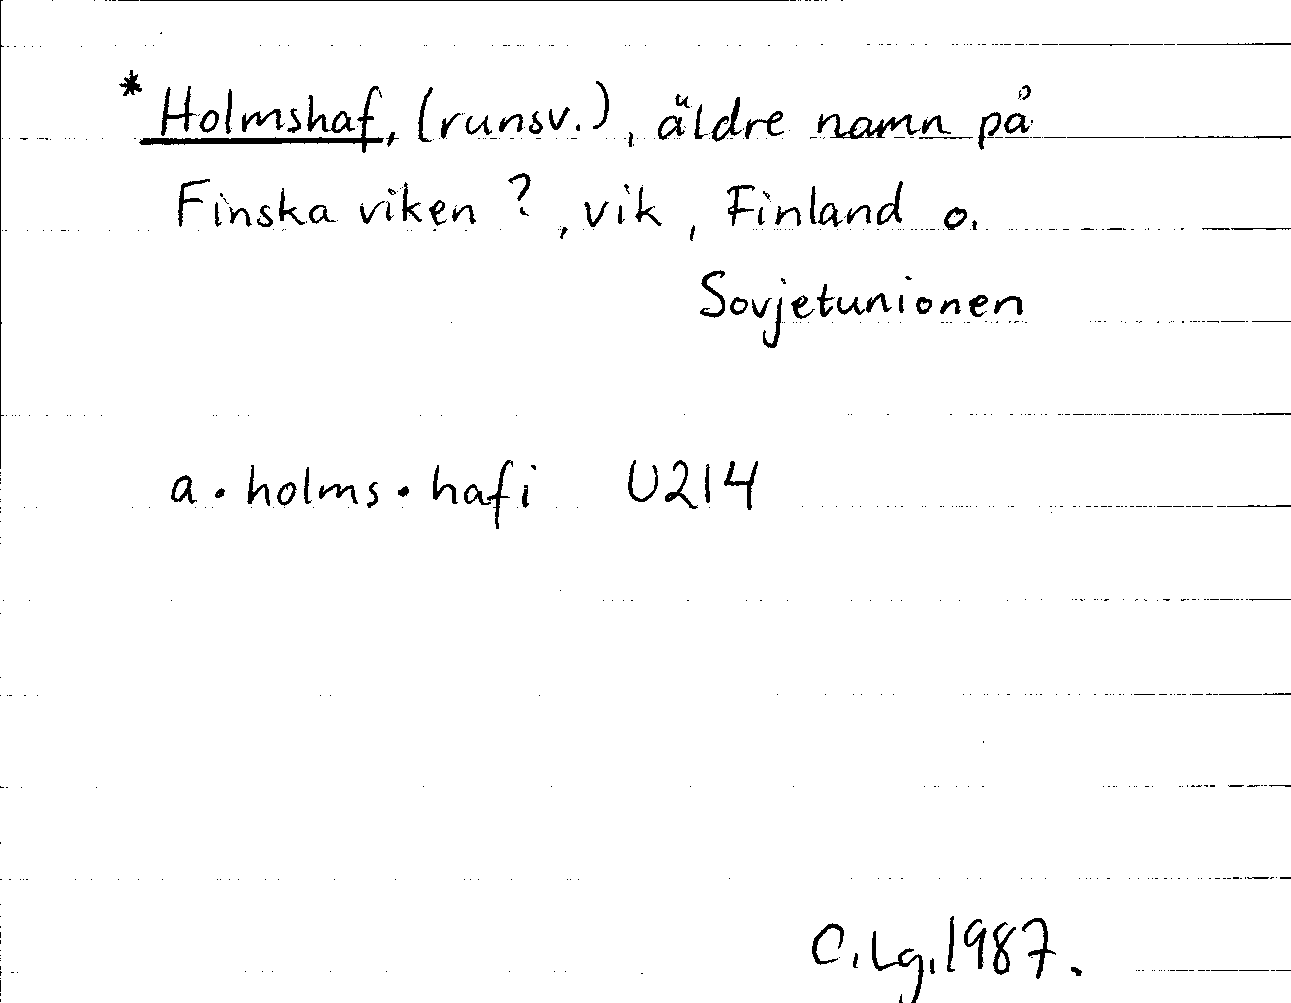 * Holmshaf, (runsv.), äldre namn på
Finska viken ?, vik, Finland o.
Sovjetunionen
a · holms · hafi U214
C.Lg.1987.